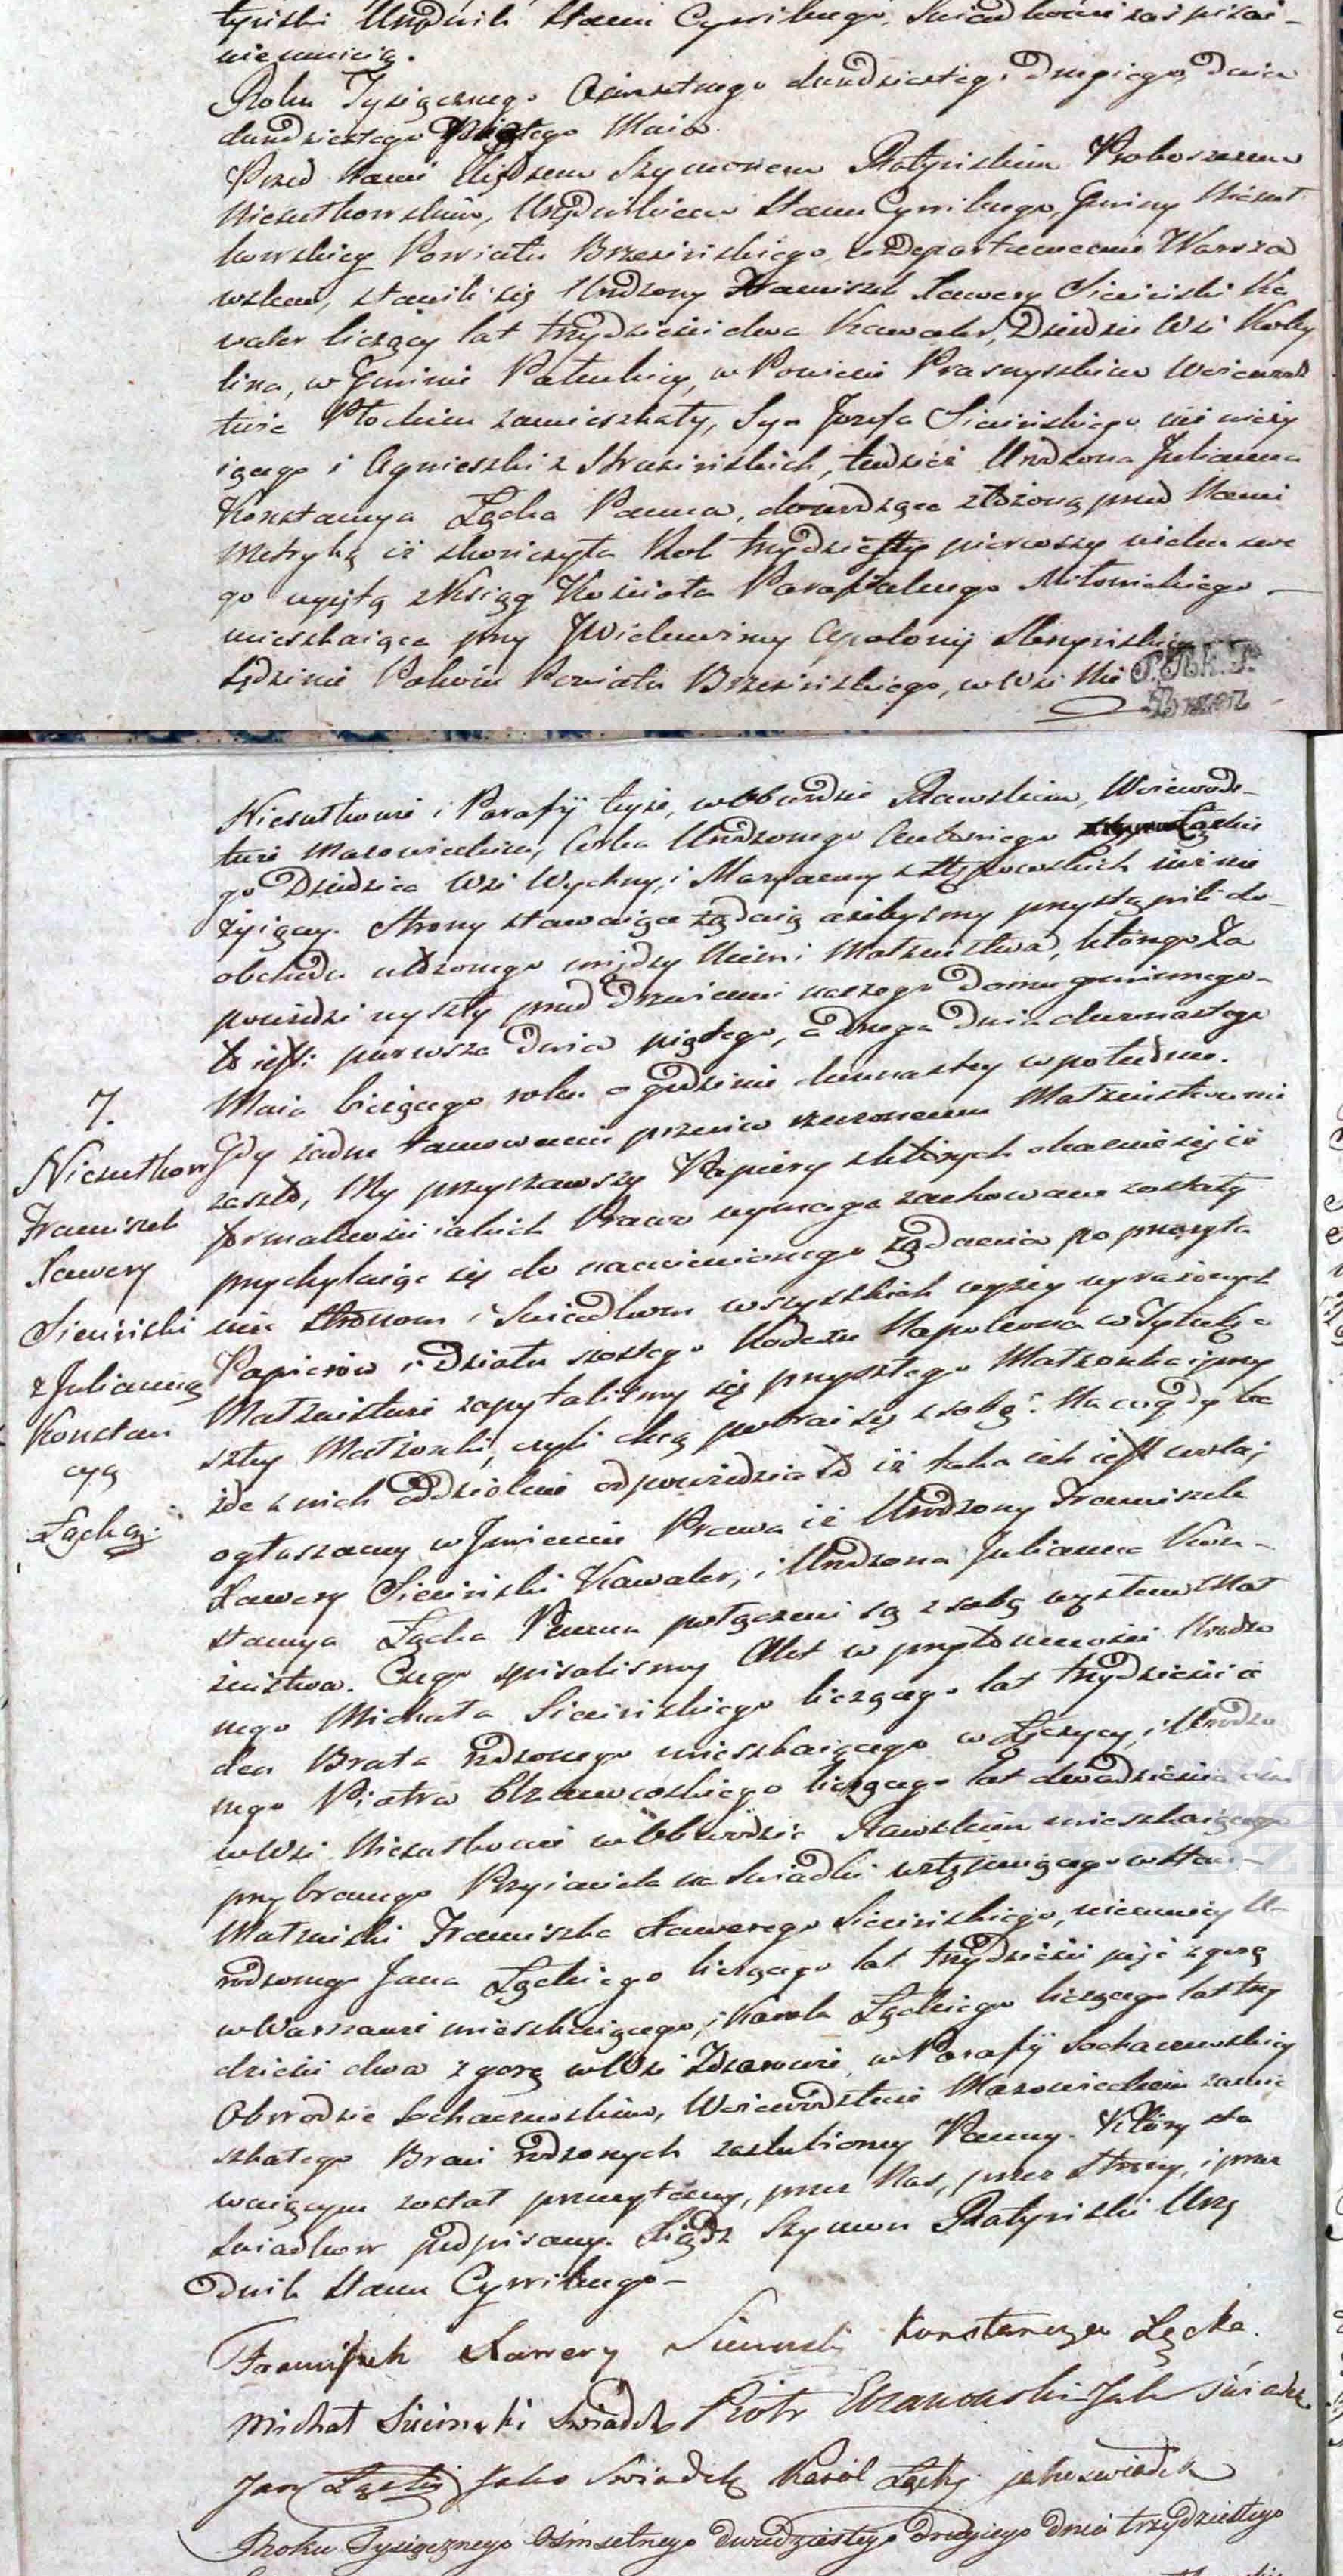 tyński Urzędnik Stanu Cywilnego, Świadkowie zaś pisać
nieumieią.
Roku Tysiącznego Osiemsetnego dwudziestego drugiego, Dnia
dwudziestego Piątego Maia.
Przed Nami Xiędzem Szymonem Ratyńskim Proboszczem
Niesułkowskim, Urzędnikiem Stanu Cywilnego, Gminy Niesuł
kowskiey Powiatu Brzezińskiego, w Departamencie Warsza
wskim, stawili się Urodzony Franciszek Xawery Siciński Ka
waler liczący lat trzydzieści dwa Kawaler, Dziedzic Wsi
lina, w Gminie w Powiecie Prasnyskim Woiewodz
twie Płockim zamieszkały, Syn Józefa Sicińskiego iuż nieży
iącego i Agnieszki z tudzież Urodzona Julianna
Konstancya Łącka Panna, dowodząca złożoną przed Nami
Metryką iż skończyła Rok trzydziesty pierwszy wieku swe
go wyiętą z Ksiąg Kościoła Parafialnego
mieszkaiąca przy JWielmożney Apolonij
Sędzinie Pokoiu Powiatu Brzezińskiego, w Wsi Nie
Niesułkowie i Parafij teyże, w Obwodzie Rawskim, Woiewodz-
twie Mazowieckim, Córka Urodzonego Antoniego Łąckie
go Dziedzica Wsi Wychny, i Maryanny z iuż nie
żyiący. Strony stawaiące żądaią ażebyśmy przystąpili do
obchodu ułożonego między Niemi Małżeństwa, którego Za
powiedzi wyszły przed Drzwiami naszego Domu gminnego
to iest: pierwsza Dnia piątego, a druga Dnia dwunastego
Maia bieżącego roku o godzinie dwunastey w południe.
Gdy żadne tamowanie przeciw rzeczonemu Małżeństwu nie
zaszło, My przyrzawszy Papiery z których okazuie się iż
formalności iakich Prawo wymaga zachowane zostały
przychylaiąc się do nadmienionego żądania po przeczyta
niu Stronom i Świadkom wszystkich wyżey wyrażonych
Papierów i Działu szóstego Kodexu Napoleona w Tytule o
Małżeństwie zapytaliśmy się przyszłego Małżonka i przy
szłey Małżonki, czyli chcą pobrać się z sobą? Na co gdy ka
żde z nich oddzielnie odpowiedziało iż taka ich iest wola;
ogłaszamy w Jmieniu Prawa iż Urodzony Franciszek
Xawery Siciński Kawaler, i Urodzona Julianna Kon-
stancya Łącka Panna połączeni są z sobą węzłem Mał
żeństwa. Czego spisaliśmy Akt w przytomności Urodzo
nego Michała Sicińskiego liczącego lat trzydzieści ie
den Brata rodzonego mieszkaiącego w Łęczycy, i Urodzo
nego Piotra liczącego lat dwadzieścia
w Wsi Niesułkowie w Obwodzie Rawskim mieszkaiącego
przybranego Przyiaciela na Świadki wstępuiącego w stan
Małżeński Franciszka Xawerego Sicińskiego, niemniey U-
rodzonego Jana Łąckiego liczącego lat trzydzieści pięć z górą
w Warszawie mieszkaiącego, i Karola Łąckiego liczącego lat trzy
dzieści dwa z górą w Wsi w Parafij Sochaczewskiey
Obwodzie Sochaczewskim, Woiewództwie Mazowieckim zamie
szkałego Braci rodzonych zaślubioney Panny. Który sta
waiącym został przeczytany, przez Nas, przez Strony, i przez
Świadków podpisany. Xiądz Szymon Ratyński Urzę
dnik Stanu Cywilnego-
Franciszek Xawery Siciński Konstancya Łącka.
Michał Siciński Świadek Piotr Jako Świadek
Jan Łącki Jako Świadek Karól Łącky jako świadek
Roku Tysiącznego Ośmsetnego Dwudziestego Drugiego Dnia trzydziestego
7.
Niesułkow
Franciszek
Xawery
Siciński
z Julianną
Konstan
cyą
Łącką.